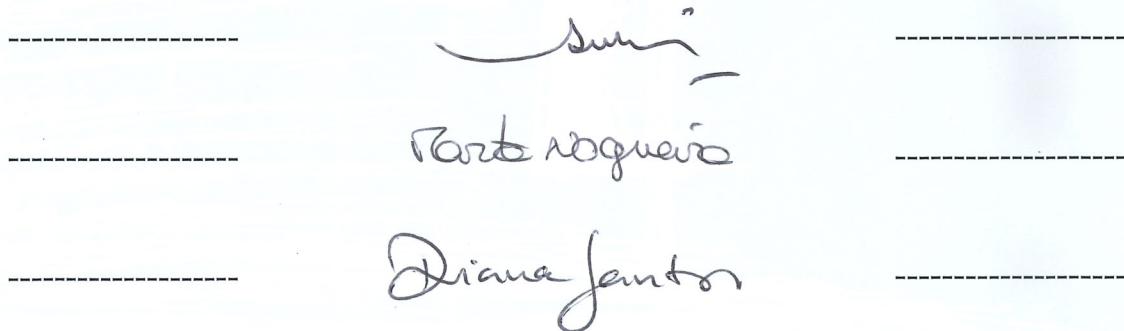 Marta Nogueira
Diana Santos